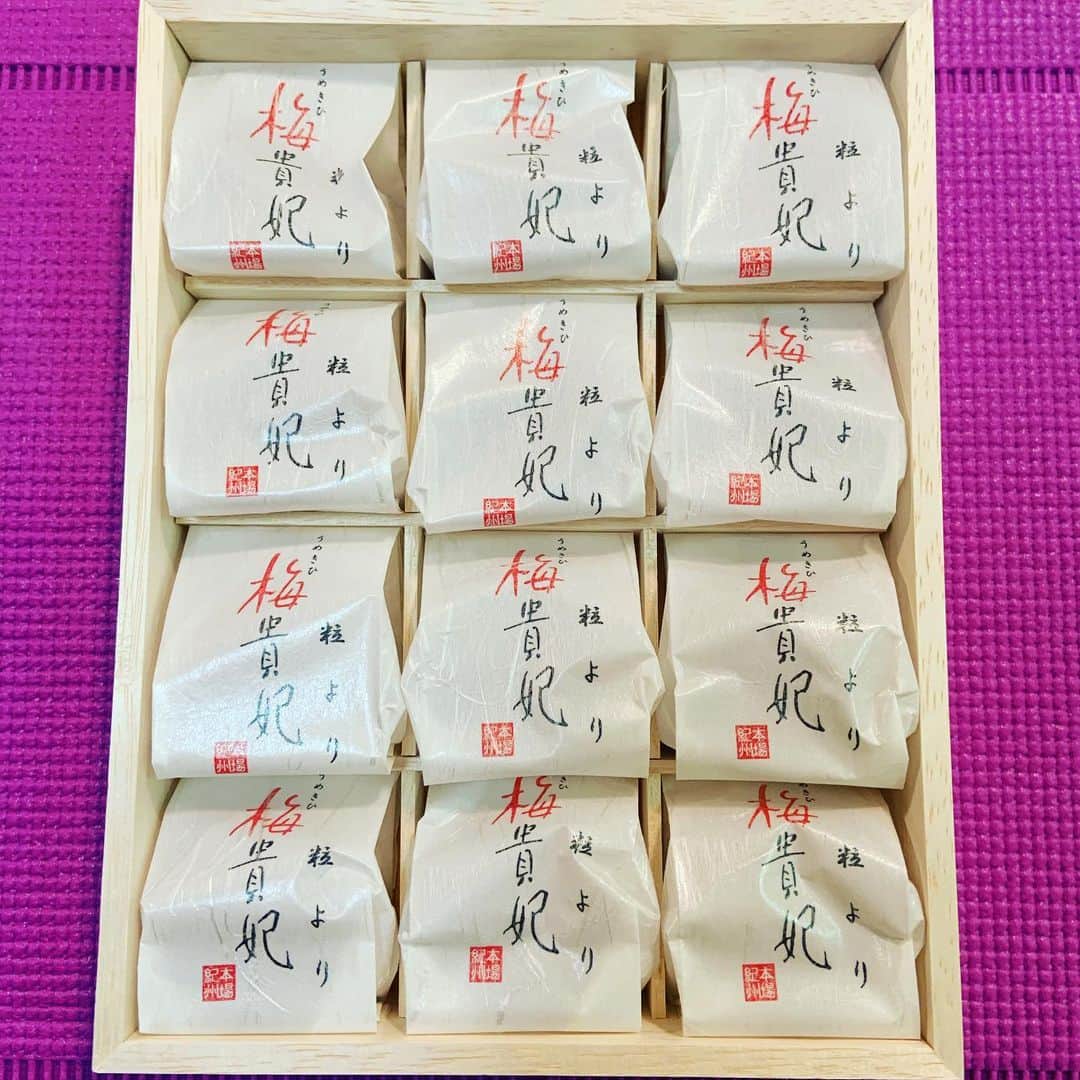 粒より
うめきひ
梅貴妃
本場
紀州
粒より
うめきひ
梅貴妃
本場
紀州
粒より
うめきひ
梅貴妃
本場
紀州
粒より
梅貴妃
本場
紀州
粒より
うめきひ
梅貴妃
本場
紀州
粒より
うめきひ
梅貴妃
本場
紀州
粒より
うめきひ
梅貴妃
本場
紀州
粒より
うめきひ
梅貴妃
本場
紀州
粒より
うめきひ
梅貴妃
本場
紀州
粒より
めきひ
梅貴妃
本場
紀州
粒より
きひ
梅貴妃
本場
紀州
粒より
きひ
梅貴妃
本場
紀州